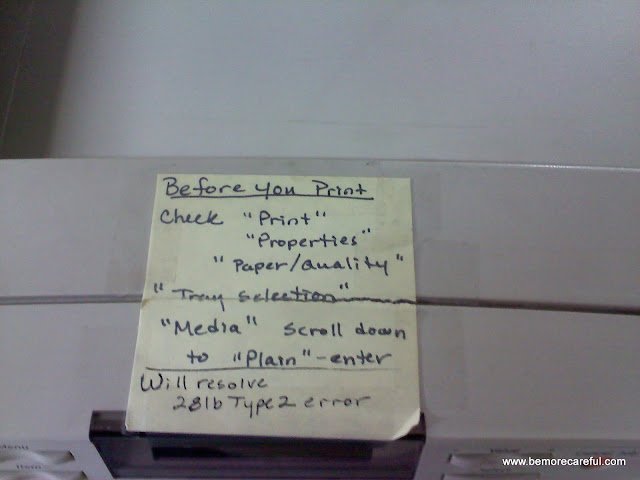 Before you Print
Check "Print"
"Properties"
"Paper/Quality"
"Tray selection"
"Media" scroll down
to "Plain"-enter
Will resolve
28lb Type2 error
Menu
Item
www.bemorecareful.com